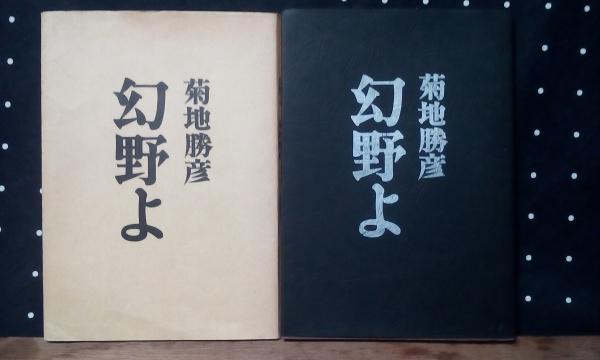 菊地勝彦
幻野よ
菊地勝彦
幻野よ